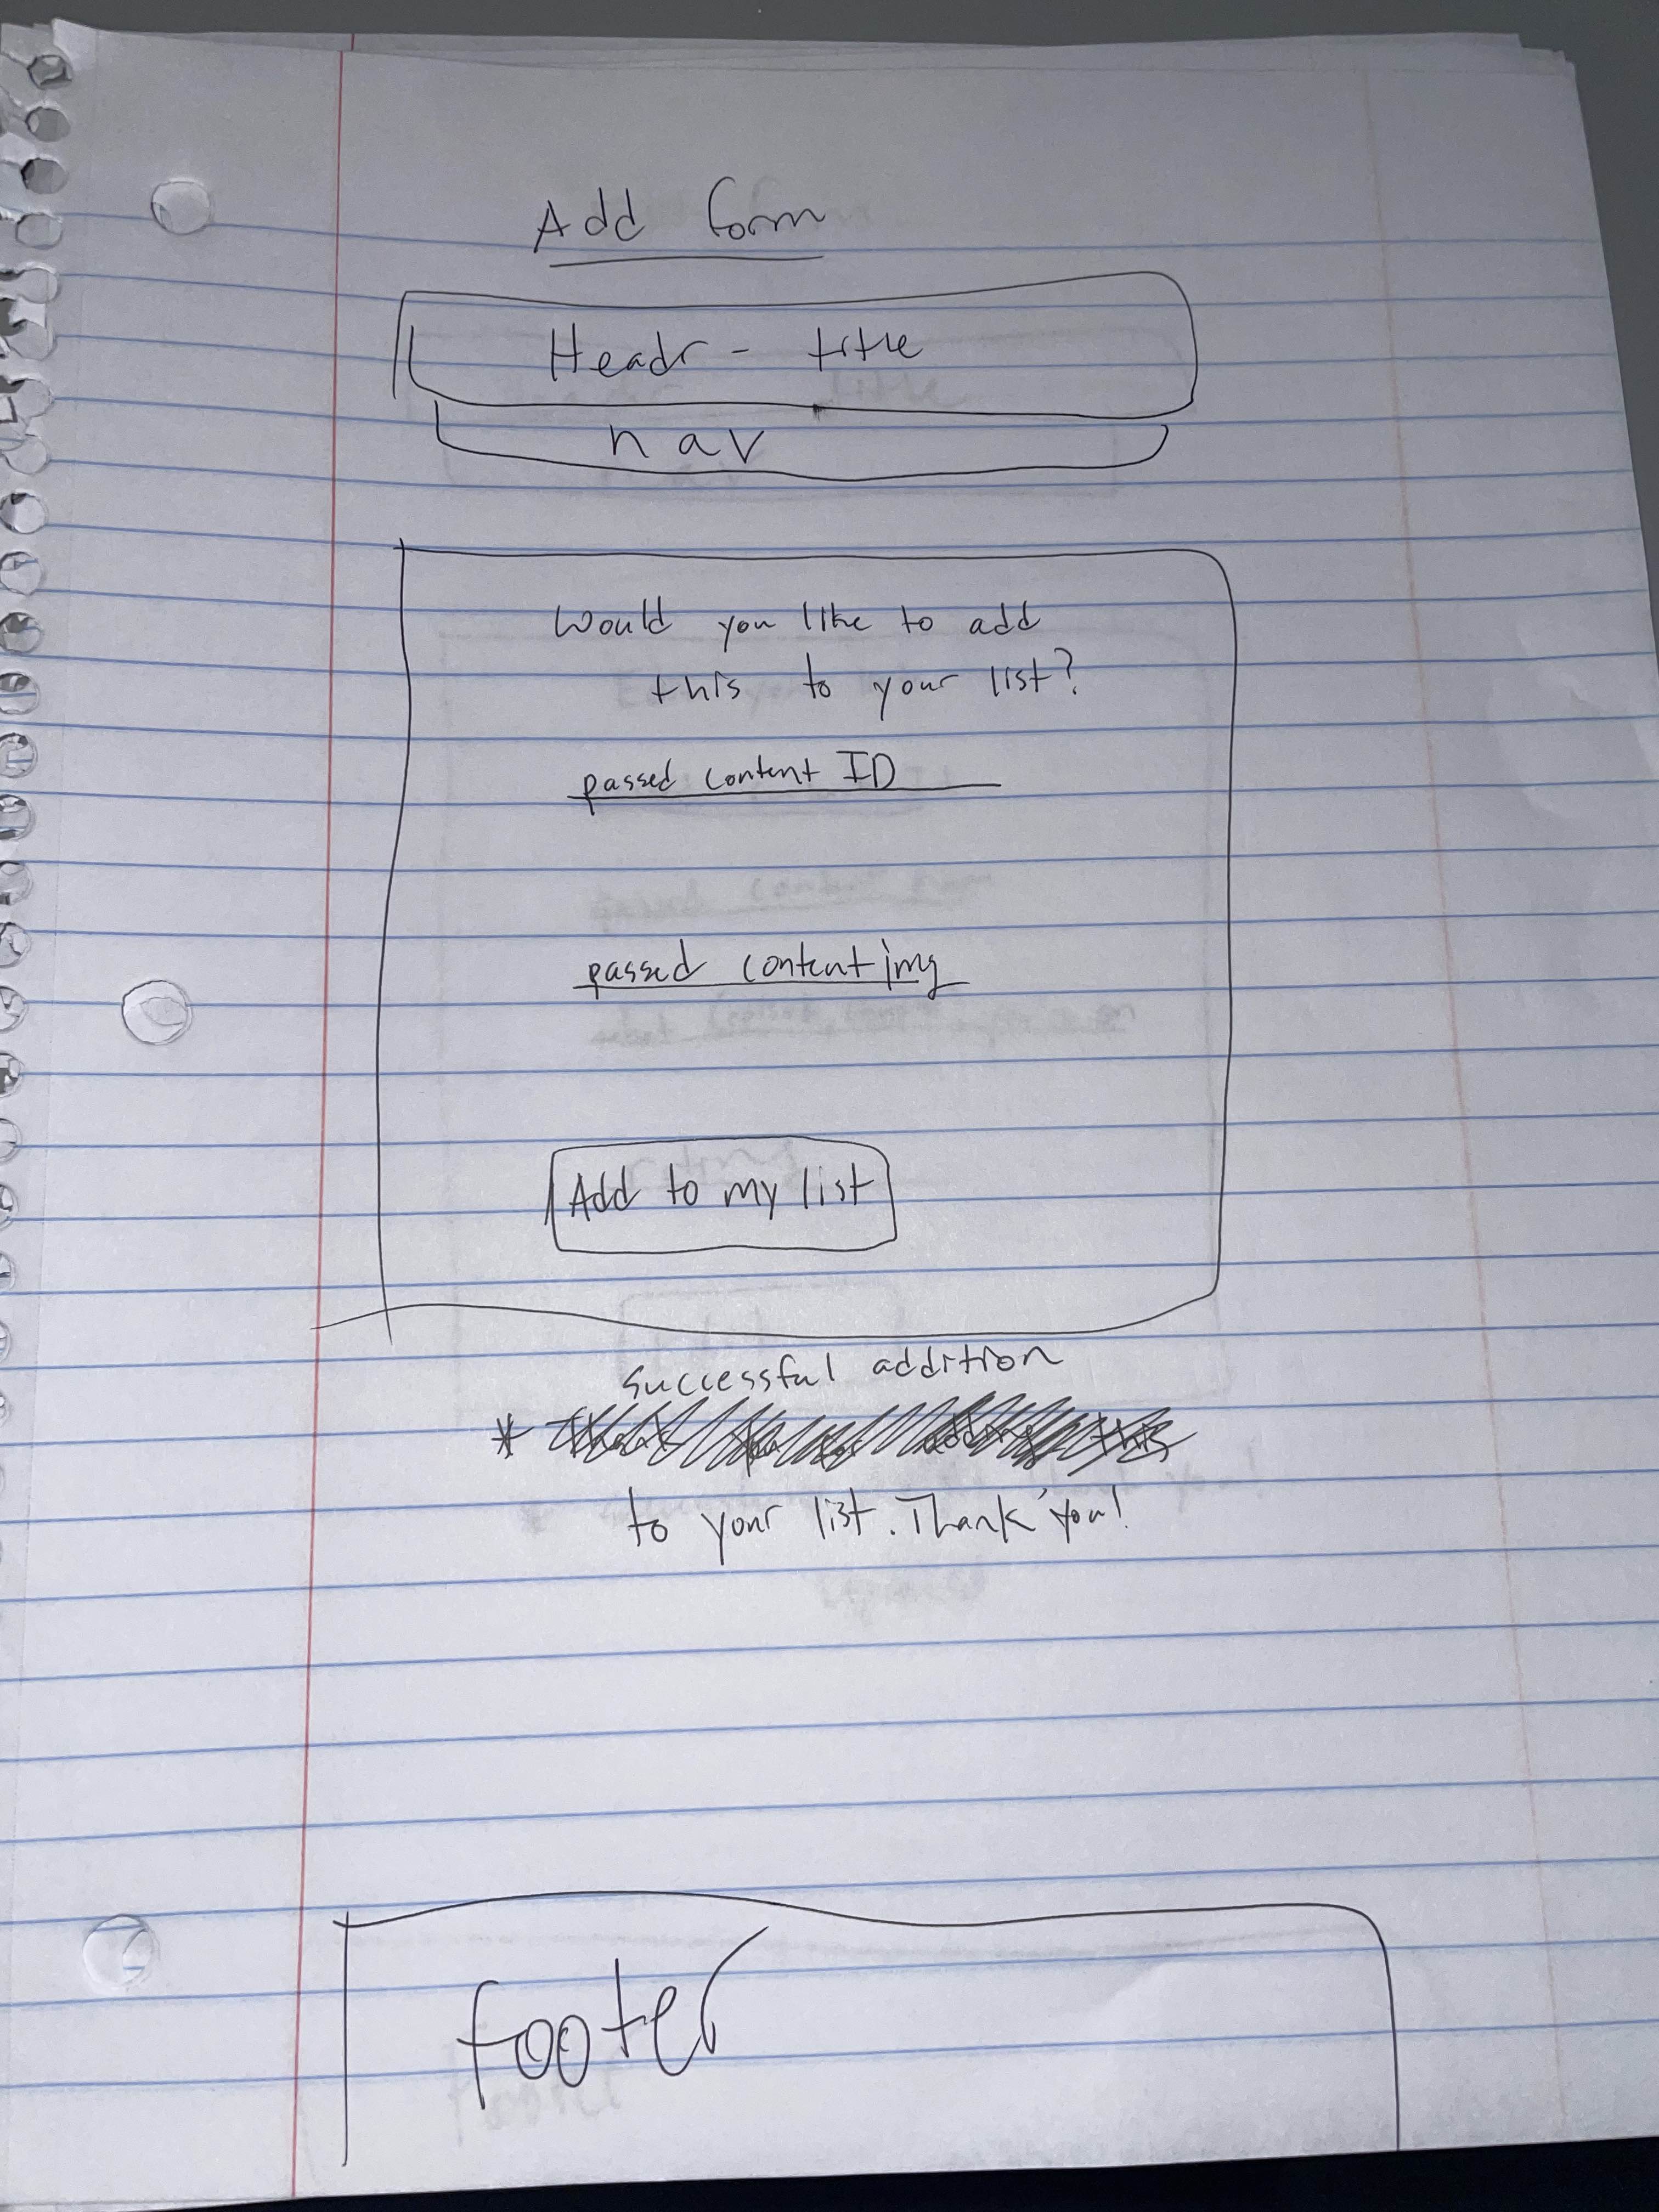 Add form
Headr - title
nav
Would you like to add
this to your list?
passed content ID
passed content img
Add to my list
successful addition
*
to your list. Thank you!
footer